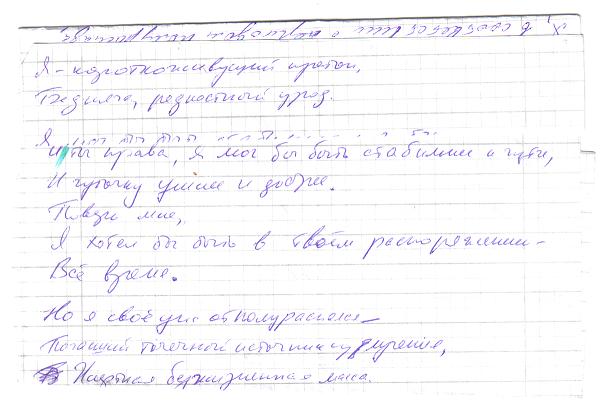 Я - короткоживущий протон,
Бедняга, редкостный урод.
Я
И ты права, я мог бы быть стабильнее чути,
И чуточку умнее и добрее.
Поверь мне,
Я хотел бы быть в твоём распоряжении -
Всё время.
Но я своё уже отполураспался -
Погасший точечный источник излучения,
Инертная безжизненная масса.